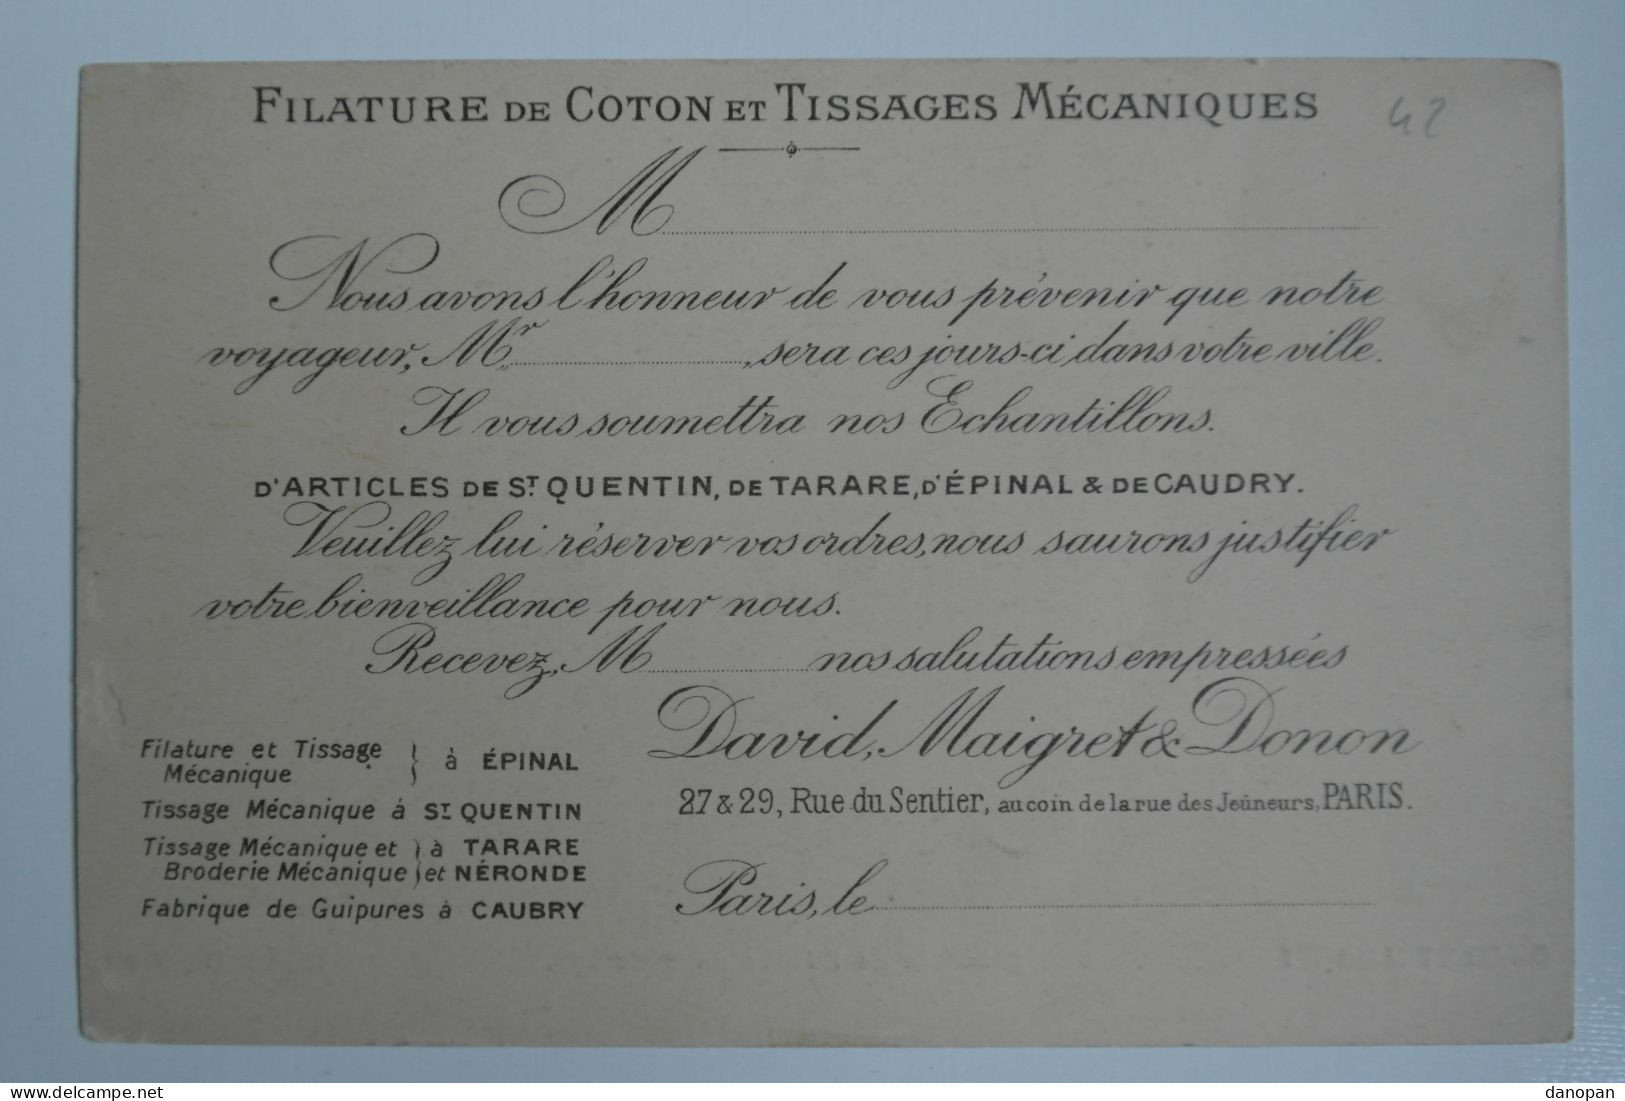 FILATURE DE COTON ET TISSAGES MÉCANIQUES
42
M
Nous avons l'honneur de vous prévenir que notre
voyageur, Mr, sera ces jours-ci dans votre ville.
Il vous soumettra nos Echantillons.
D'ARTICLES DE ST QUENTIN, DE TARARE, D'ÉPINAL & DE CAUDRY.
Veuillez lui réserver vos ordres, nous saurons justifier
votre bienveillance pour nous.
Recevez, M nos salutations empressées
David, Maigret & Donon
27 & 29, Rue du Sentier, au coin de la rue des Jeûneurs, PARIS.
Paris, le
Filature et Tissage
Mécanique } à ÉPINAL
Tissage Mécanique à ST QUENTIN
Tissage Mécanique et } à TARARE
Broderie Mécanique } et NÉRONDE
Fabrique de Guipures à CAUBRY
www.delcampe.net
danopan